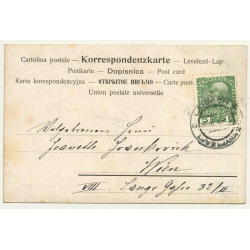 Cartolina postale — Korrespondenzkarte — Levelező-Lap
Postkarte — Dopisnica — Post card
Karta korespondencyjna — ОТКРЫТОЕ ПИСЬМО — Carte post
Union postale universelle
Jeanette Ivankovich
Wien
VIII. Lange Gasse 32/II